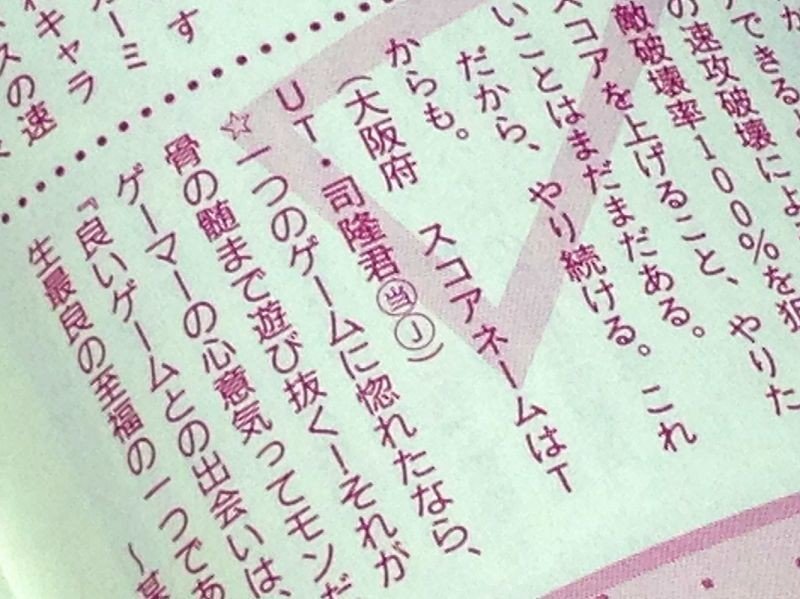 できる
の速攻破壊によ
敵破壊率100%を狙
スコアを上げること、やりた
いことはまだまだある。
だから、やり続ける。これ
からも。
(大阪府　スコアネームはT
UT・司隆君㊟Ⓙ)
☆一つのゲームに惚れたなら、
骨の髄まで遊び抜く!それが
ゲーマーの心意気ってモンだ
『良いゲームとの出会いは、
生最良の至福の一つであ
〜某
す
ーミ
キャラ
スの速